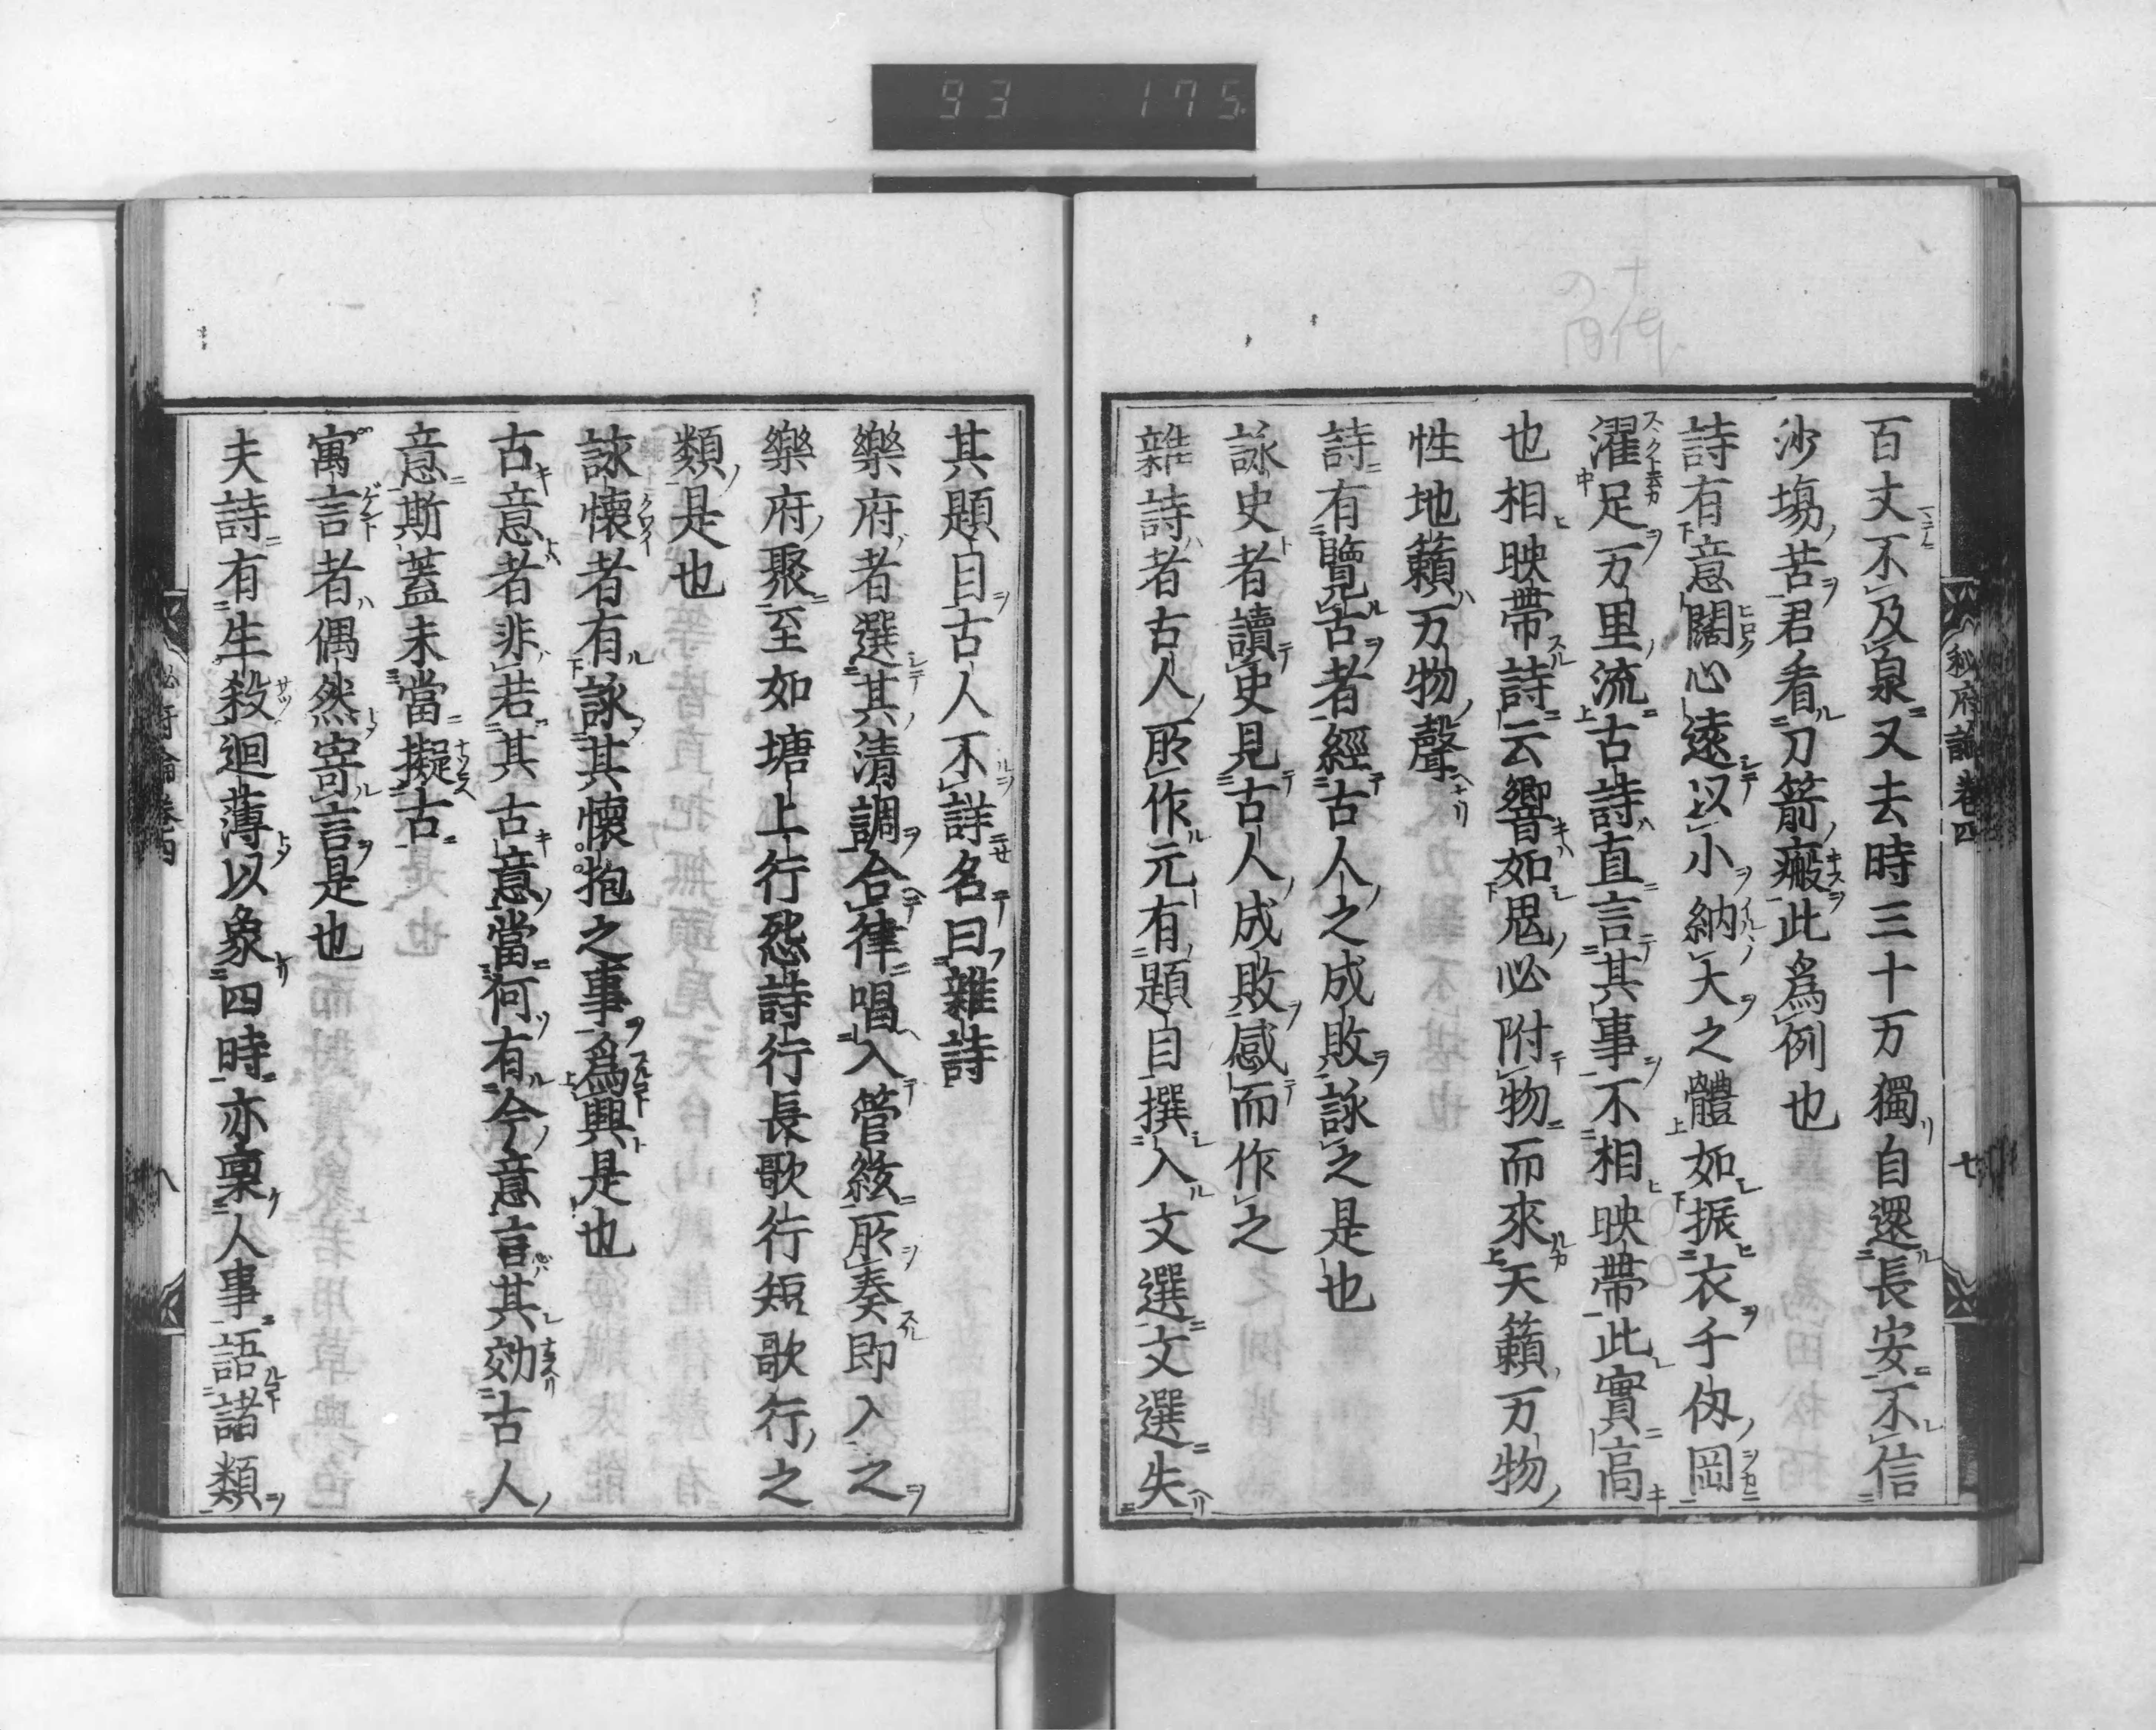 93 175
百丈不及泉又去時三十万獨自還長安不信
沙塲苦君看刀箭瘢此爲例也
詩有意闊心遠以小納大之體如振衣千仭岡
濯足万里流古詩直言其事不相映帶此實高
也相映帶詩云響如鬼必附物而來天籟万物
性地籟万物聲
詩有覽古者經古人之成敗詠之是也
詠史者讀史見古人成敗感而作之
雜詩者古人所作元有題自撰入文選文選失
秘府論卷四 七
其題自古人不詳名曰雜詩
樂府者選其清調合律唱入管絃所奏即入之
樂府聚至如塘上行怨詩行長歌行短歌行之
類是也
詠懷者有詠其懷抱之事爲興是也
古意者非若其古意當何有今意言其効古人
意斯蓋未當擬古
寓言者偶然寄言是也
夫詩有生殺迴薄以象四時亦稟人事語諸類
八